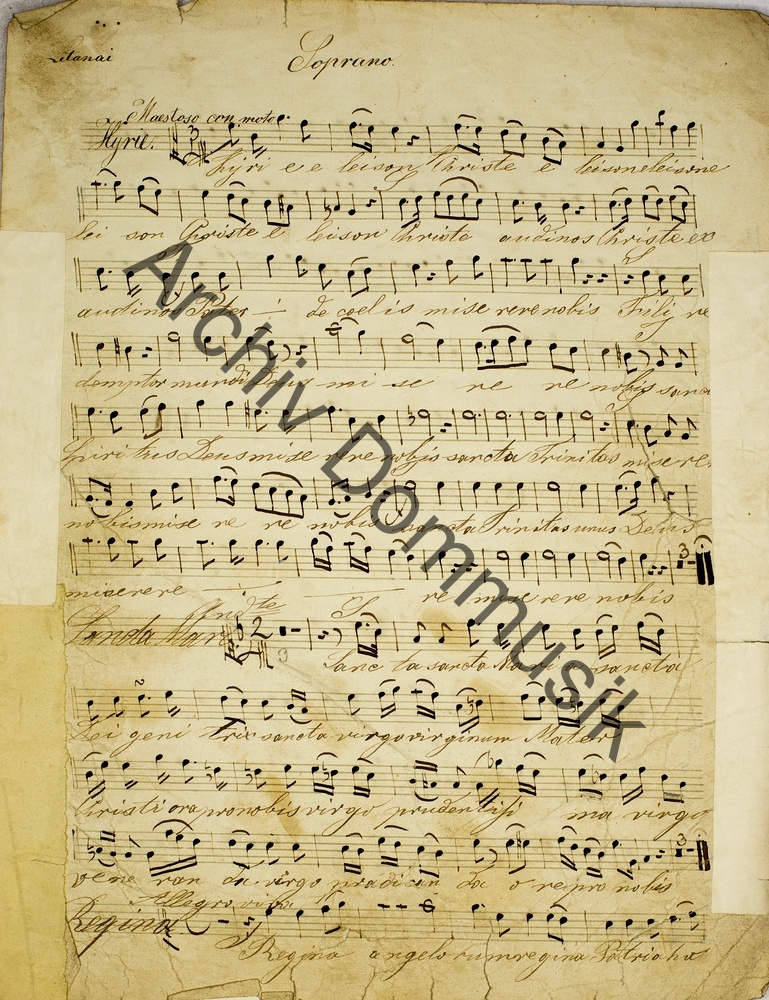 Litanai
Soprano.
Maestoso con moto
Kyrie.
Kyri e e leison Christe e leisoneleisone
lei son Christe e leison Christe audinos Christe ex
audinos Pater de coelis mise rerenobis Fili re
demptor mundi Deus mi se re re nobis sanc
Spiritus Deusmise rere nobis sancta Trinitas mise re
nobismise re re nobis sancta Trinitas unus Deus
miserere re mise rere nobis
Andte
Sancta Mari
Sanc ta sancta Mari a sancta
Dei geni trix sancta virgo virginum Mater
Christi ora pro nobis virgo prudentissi ma virgo
vene ran da virgo prädican da o re pro nobis
Allegro viva
Regina
Regina angelo rumregina Patriaha
Archiv Dommusik